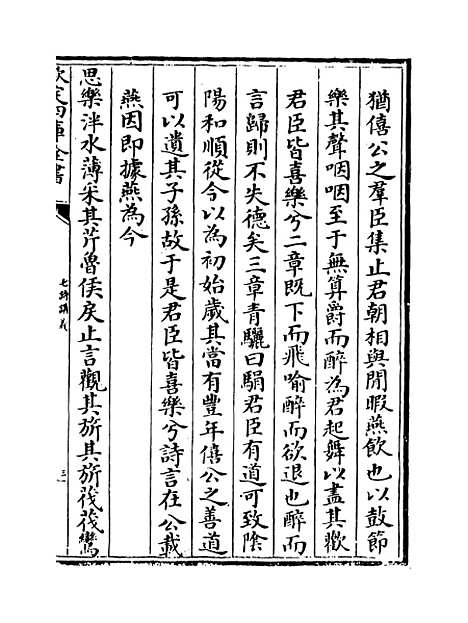 猶僖公之羣臣集止君朝相與閒暇燕飲也以鼓節
樂其聲咽咽至于無算爵而醉為君起舞以盡其歡
君臣皆喜樂兮二章既下而飛喻醉而欲退也醉而
言歸則不失德矣三章青驪曰駽君臣有道可致陰
陽和順從今以為初始歲其當有豐年僖公之善道
可以遺其子孫故于是君臣皆喜樂兮詩言在公載
燕因即據燕為今
思樂泮水薄采其芹魯侯戾止言觀其旂其旂茷茷鸞
欽定四庫全書
毛詩講義
三